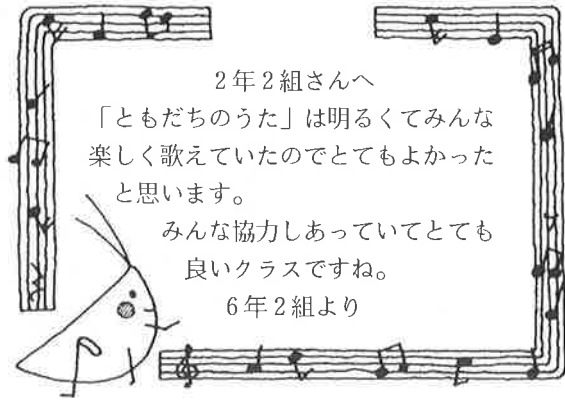 2年2組さんへ
「ともだちのうた」は明るくてみんな
楽しく歌えていたのでとてもよかった
と思います。
みんな協力しあっていてとても
良いクラスですね。
6年2組より